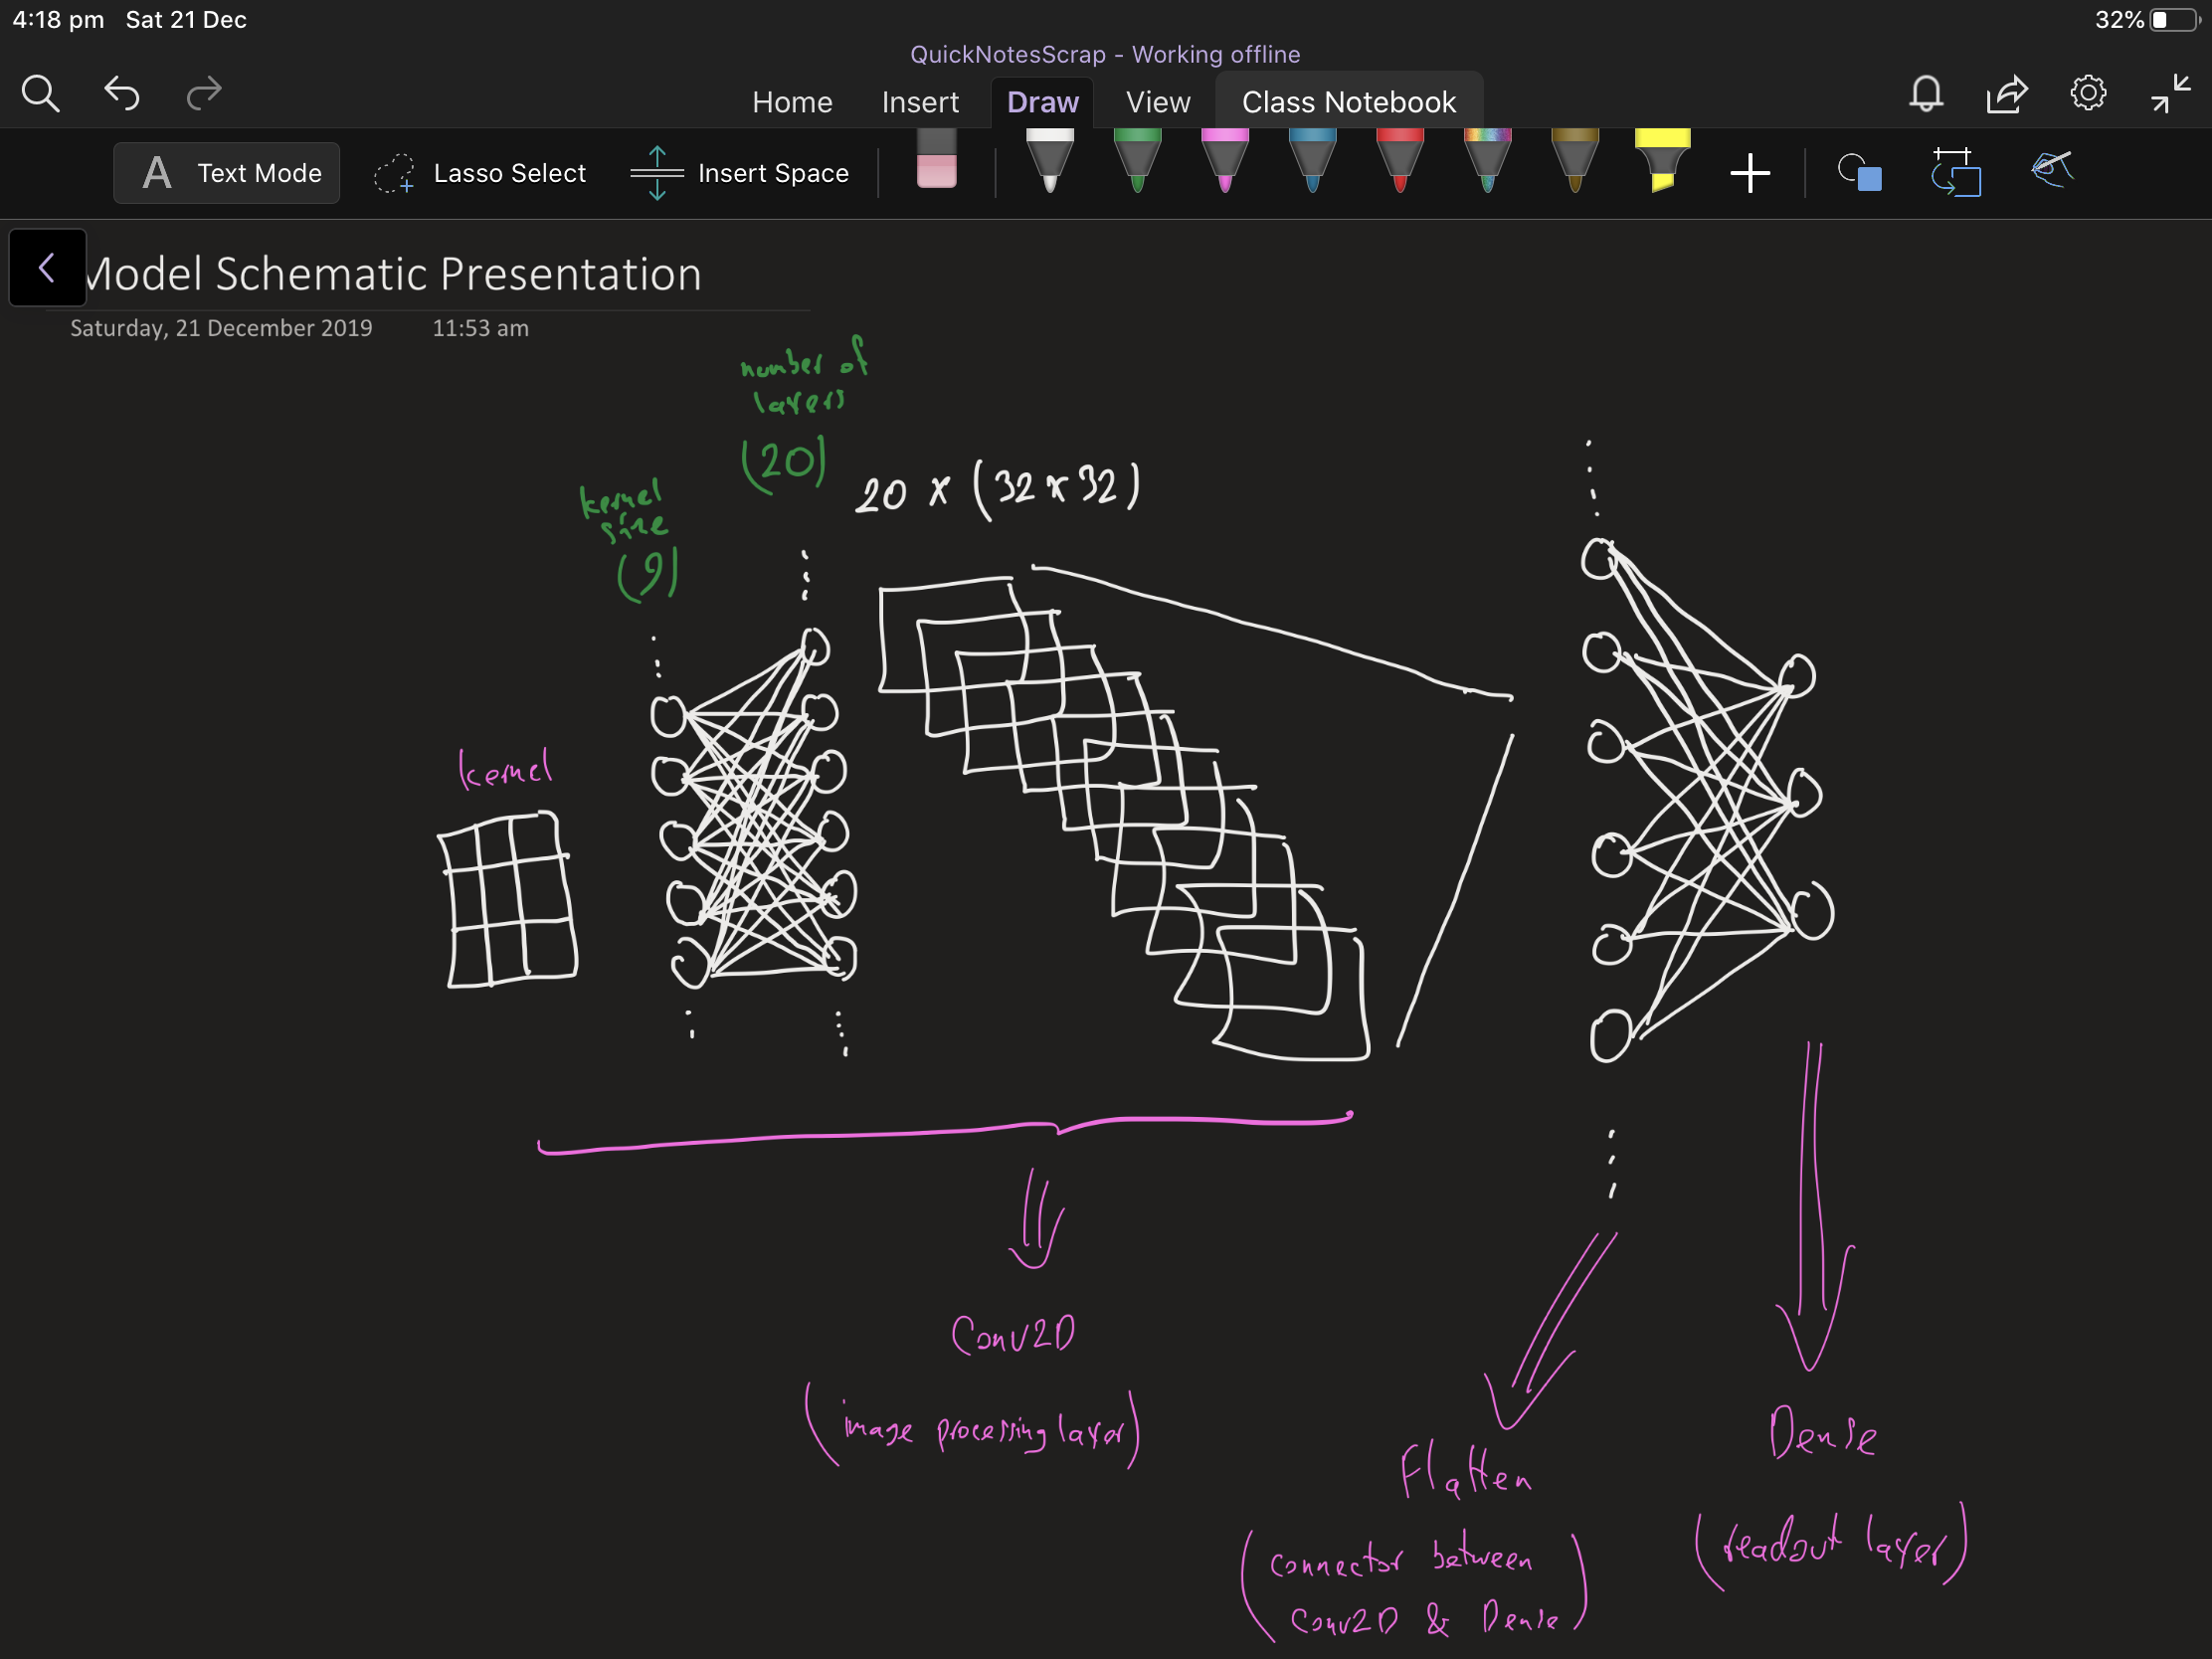 4:18 pm Sat 21 Dec
32%
QuickNotesScrap - Working offline
Home Insert Draw View Class Notebook
A Text Mode Lasso Select Insert Space
Model Schematic Presentation
Saturday, 21 December 2019 11:53 am
number of
layers
(20)
20 x (32 x 32)
kernel
size
(9)
kernel
Conv2D
(image processing layer)
Flatten
(connector between
Conv2D & Dense)
Dense
(readout layer)